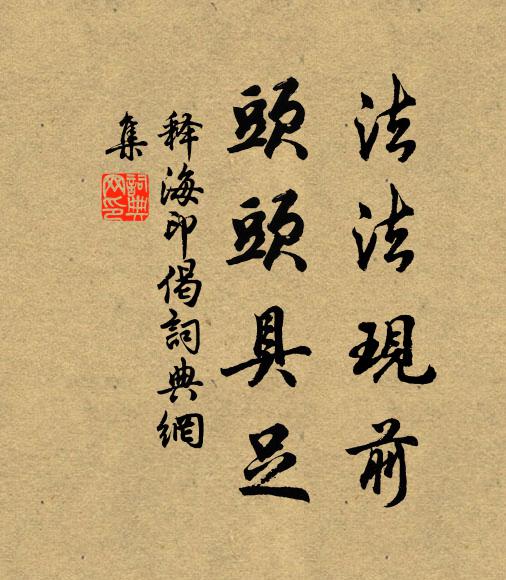 法法現前
頭頭具足
释海印偈詞典網
集
詞典網印